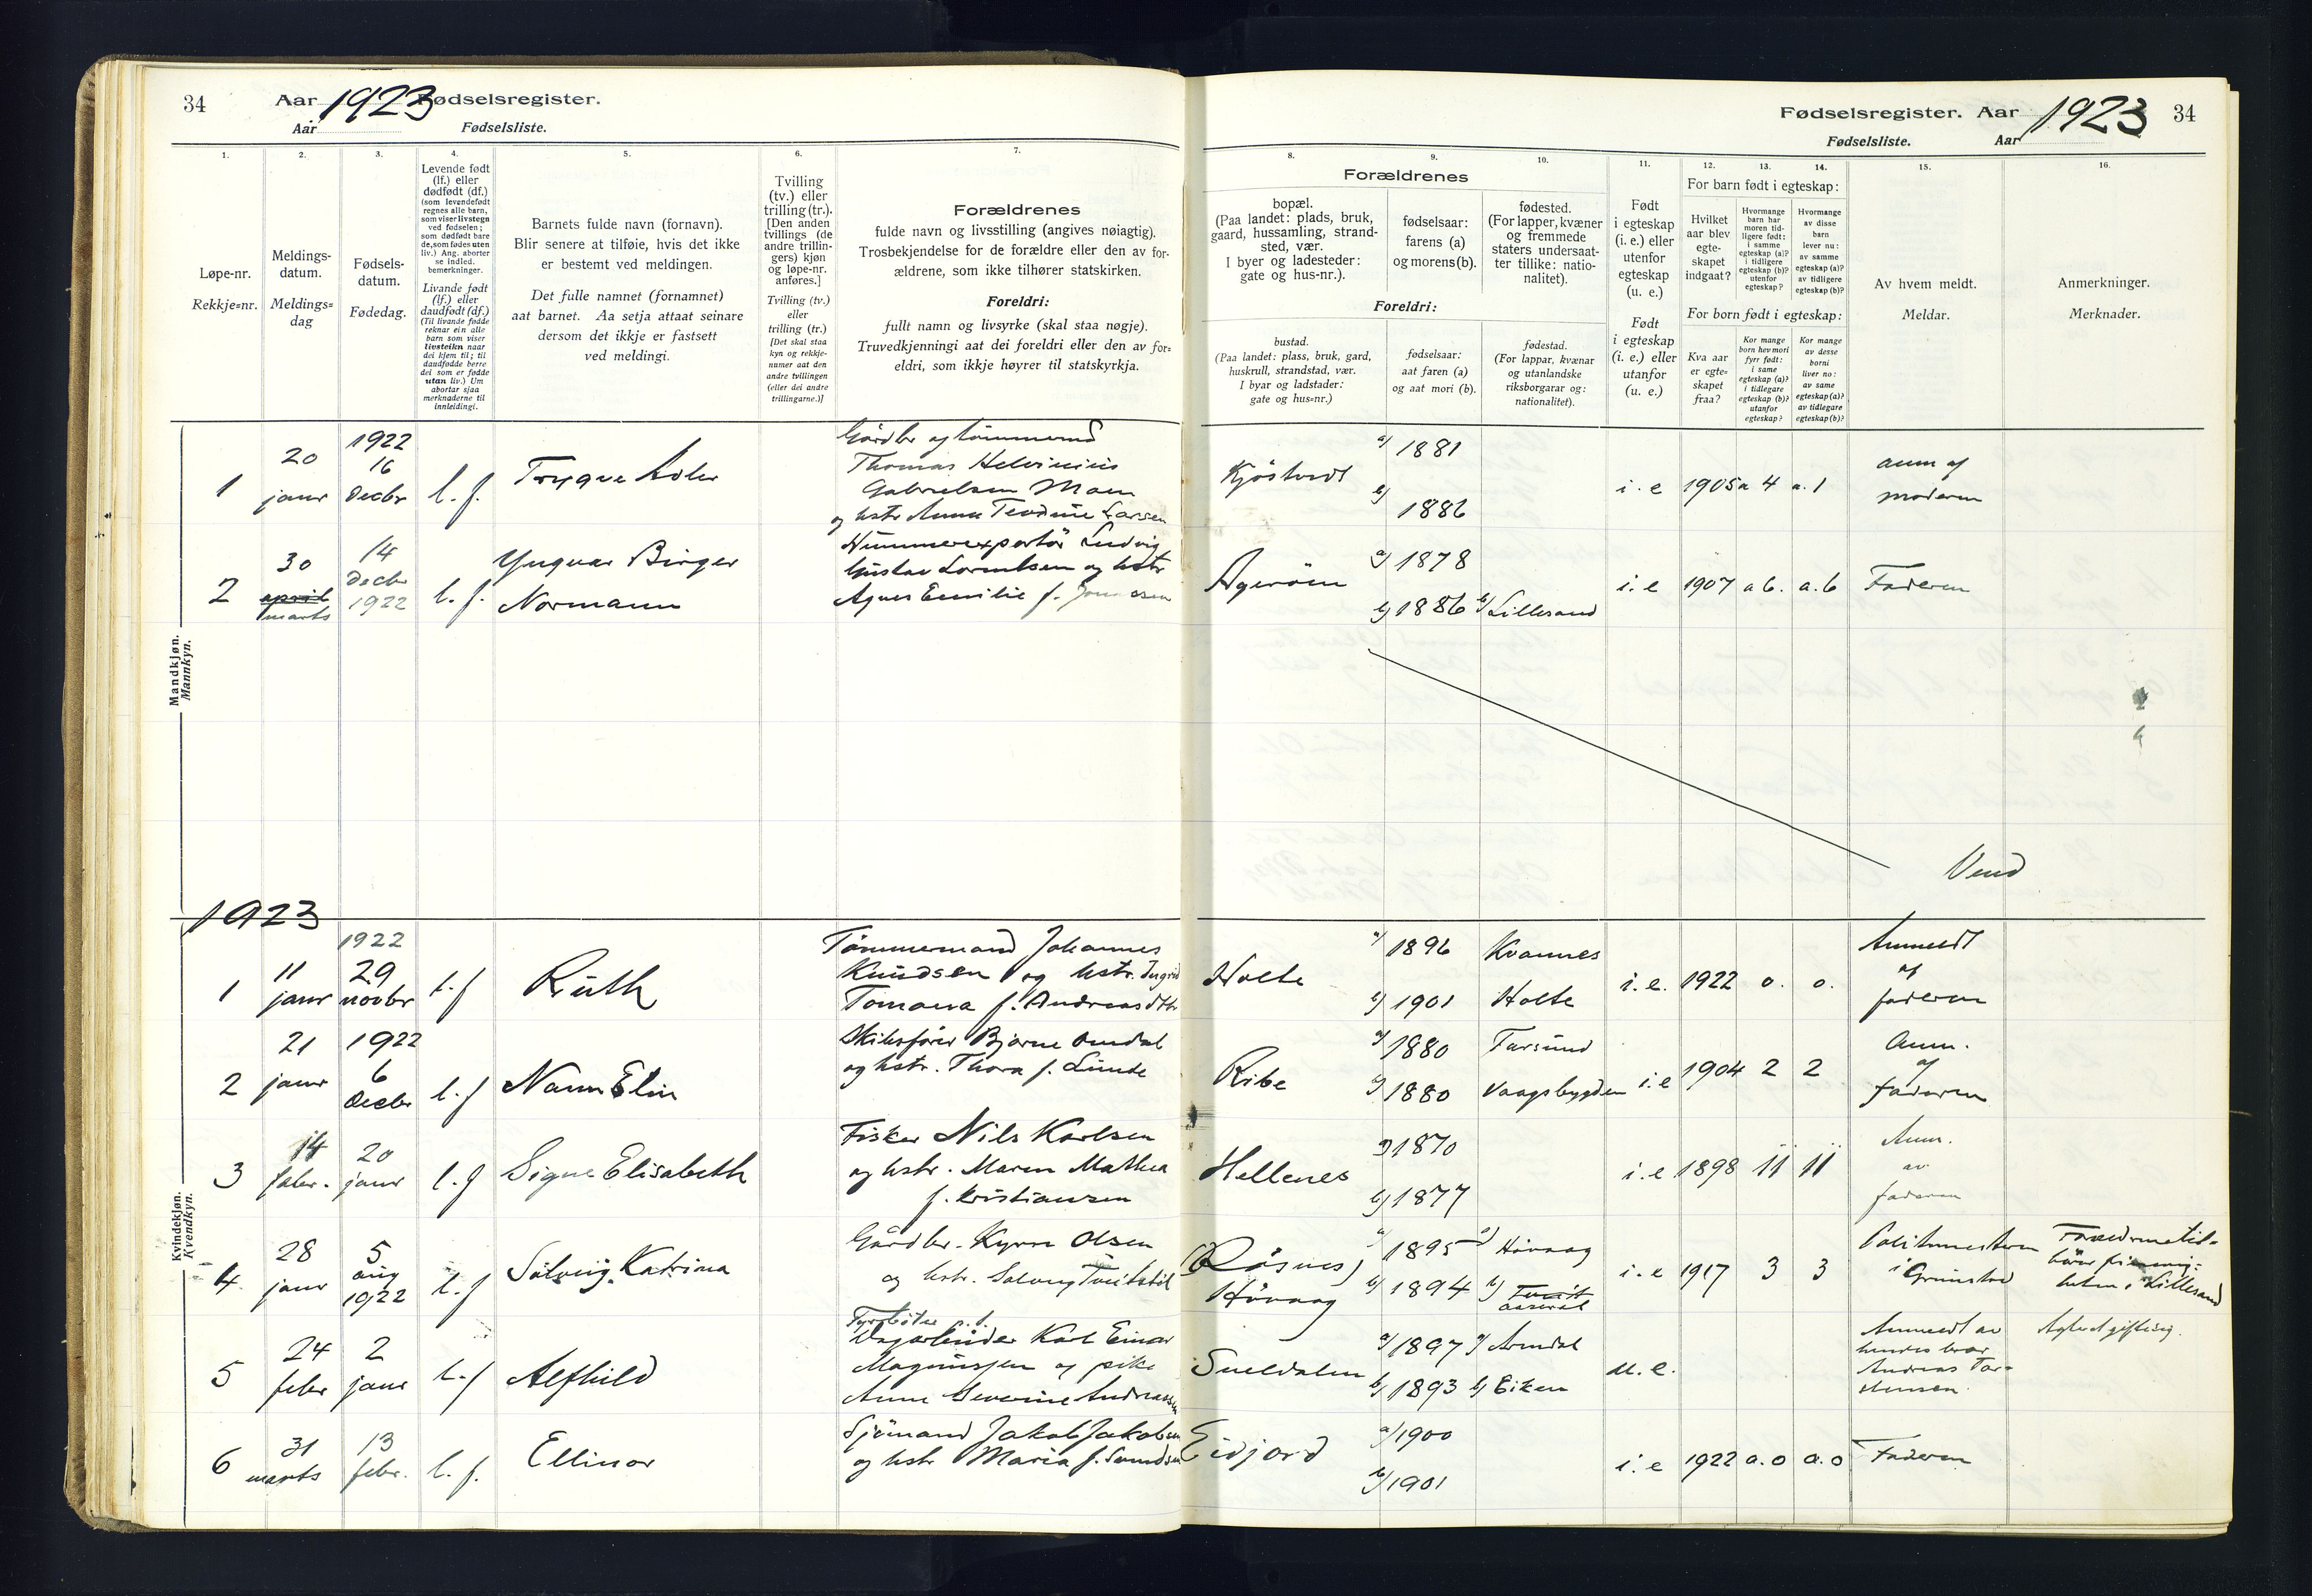 34
Aar 1923 Fødselsregister.
Aar Fødselsliste.
1.
2.
3.
4.
5.
6.
7.
Løpe-nr.
Rekkje=nr.
Meldings-
datum.
Meldings=
dag
Fødsels-
datum.
Fødedag.
Levende født
(lf.) eller
dødfødt (df.)
(som levendefødt
regnes alle barn,
som viser livstegn
ved fødselen;
som dødfødt bare
de, som fødes uten
liv.) Ang. aborter
se indled.
bemerkninger.
Livande født
(lf.) eller
daudfødt (df.)
(Til livande fødde
reknar ein alle
barn som viser
livsteikn naar
dei kjem til; til
daudfødde berre
dei som er fødde
utan liv.) Um
abortar sjaa
merknaderne til
innleidingi.
Barnets fulde navn (fornavn).
Blir senere at tilføie, hvis det ikke
er bestemt ved meldingen.
Det fulle namnet (fornamnet)
aat barnet. Aa setja attaat seinare
dersom det ikkje er fastsett
ved meldingi.
Tvilling
(tv.) eller
trilling (tr.).
[Den anden
tvillings (de
andre trillin-
gers) kjøn
og løpe-nr.
anføres.]
Tvilling (tv.)
eller
trilling (tr.)
[Det skal staa
kyn og rekkje-
numer aat den
andre tvillingen
(eller dei andre
trillingarne.)]
Forældrenes
fulde navn og livsstilling (angives nøiagtig).
Trosbekjendelse for de forældre eller den av for-
ældrene, som ikke tilhører statskirken.
Foreldri:
fullt namn og livsyrke (skal staa nøgje).
Truvedkjenningi aat dei foreldri eller den av for=
eldri, som ikkje høyrer til statskyrkja.
Mandkjøn.
Mannkyn.
1
20
janr
1922
16
Decbr
l. f.
Trygve Adler
Gårdbr og tømmermd
Thomas Helvinius
Gabrielsen Moen
og hstr Anna Teodine Larsen
2
30
april
marts
14
Decbr
1922
l. f.
Yngvar Birger
Normann
Hummerexportör Ludvig
Gustav Lorentsen og hstr
Agnes Emilie f.
1923
Kvindekjøn.
Kvendkyn.
1
11
janr
1922
29
novbr
l. f
Ruth
Tømmermand Johannes
Knudsen og hstr. Ingrid
Tomaea f. Andreasdtr
2
21
janr
1922
6
Decbr
l. f
Nanna Elin
Skibsfører Bjarne Omdal
og hstr. Thora f. Lunde
3
14
febr.
20
janr
l. f
Signe Elisabeth
Fisker Nils Karlsen
og hstr. Maren Mathea
f. Kristiansen
4
28
janr
5
aug
1922
l. f
Solveig Katrina
Gårdbr. Kyrre Olsen
og hstr. Solveig Tveitstöl
5
24
febr
2
janr
l. f
Alfhild
Fyrbøter
Karl Einar
Magnussen og pike
Anne Severine Andreassen
6
31
marts
13
febr.
l. f.
Ellinor
Sjömand Jakob Jakobsen
og hstr Maria f.
Fødselsregister. Aar 1923 34
Fødselsliste. Aar
8.
9.
10.
11.
12.
13.
14.
15.
16.
Forældrenes
bopæl.
(Paa landet: plads, bruk,
gaard, hussamling, strand-
sted, vær.
I byer og ladesteder:
gate og hus-nr.).
fødselsaar:
farens (a)
og morens (b).
fødested.
(For lapper, kvæner
og fremmede
staters undersaat-
ter tillike: natio-
nalitet).
Foreldri:
bustad.
(Paa landet: plass, bruk, gard,
huskrull, strandstad, vær.
I byar og ladstader:
gate og hus=nr.)
fødselsaar:
aat faren (a)
og aat mori (b).
fødestad.
(For lappar, kvænar
og utanlandske
riksborgarar og:
nationalitet).
Født
i egteskap
(i. e.) eller
utenfor
egteskap
(u. e.)
Født
i egteskap
(i. e.) eller
utanfor
(u. e.)
For barn født i egteskap:
Hvilket
aar blev
egte-
skapet
indgaat?
Hvormange
barn har
moren tid-
ligere født:
i samme
egteskap (a)?
i tidligere
egteskap (b)?
utenfor
egteskap?
Hvormange
av disse
barn
lever nu:
av samme
egteskap (a)?
av tidligere
egteskap (b)?
For born født i egteskap:
Kva aar
er egte=
skapet
fraa?
Kor mange
born hev mori
fyrr født:
i same
egteskap (a)?
i tidlegare
egteskap (b)?
utanfor
egteskap?
Kor mange
av desse
borni
liver no:
av same
egteskap (a)?
av tidlegare
egteskap (b)?
Av hvem meldt.
Meldar.
Anmerkninger.
Merknader.
Kjöstvedt
a) 1881
b) 1886
i. e 1905 a 4 a. 1
anm af
moderen
Ageröen
a) 1878
b) 1886 b) Lillesand
i. e 1907 a 6. a. 6
Faderen
Vend
Holte
a) 1896 Kvannes
b) 1901 Holte
i. e. 1922 0. 0.
Anmeldt
af
faderen
Ribe
a) 1880 Farsund
b) 1880 Vaagsbygden
i. e 1904 2 2
Anm.
af
faderen
Hellenes
a) 1870
b) 1877
i. e 1898 11 11
Anm.
av
faderen
(Røsnes)
Hövaag
a) 1895 a) Hövaag
b) 1894 b) Tveit
Aaseral
i. e 1917 3 3
Politimesteren
i Grimstad
Forældrene til-
hører frimenig-
heten i Lillesand
a) 1897 a) Arendal
b) 1893 b) Eiken
u. e.
Anmeldt av
hendes bror
Andreas Tor-
stensen
Eidjord
a) 1900
b) 1901
i. e 1922 a. 0 a. 0
Faderen